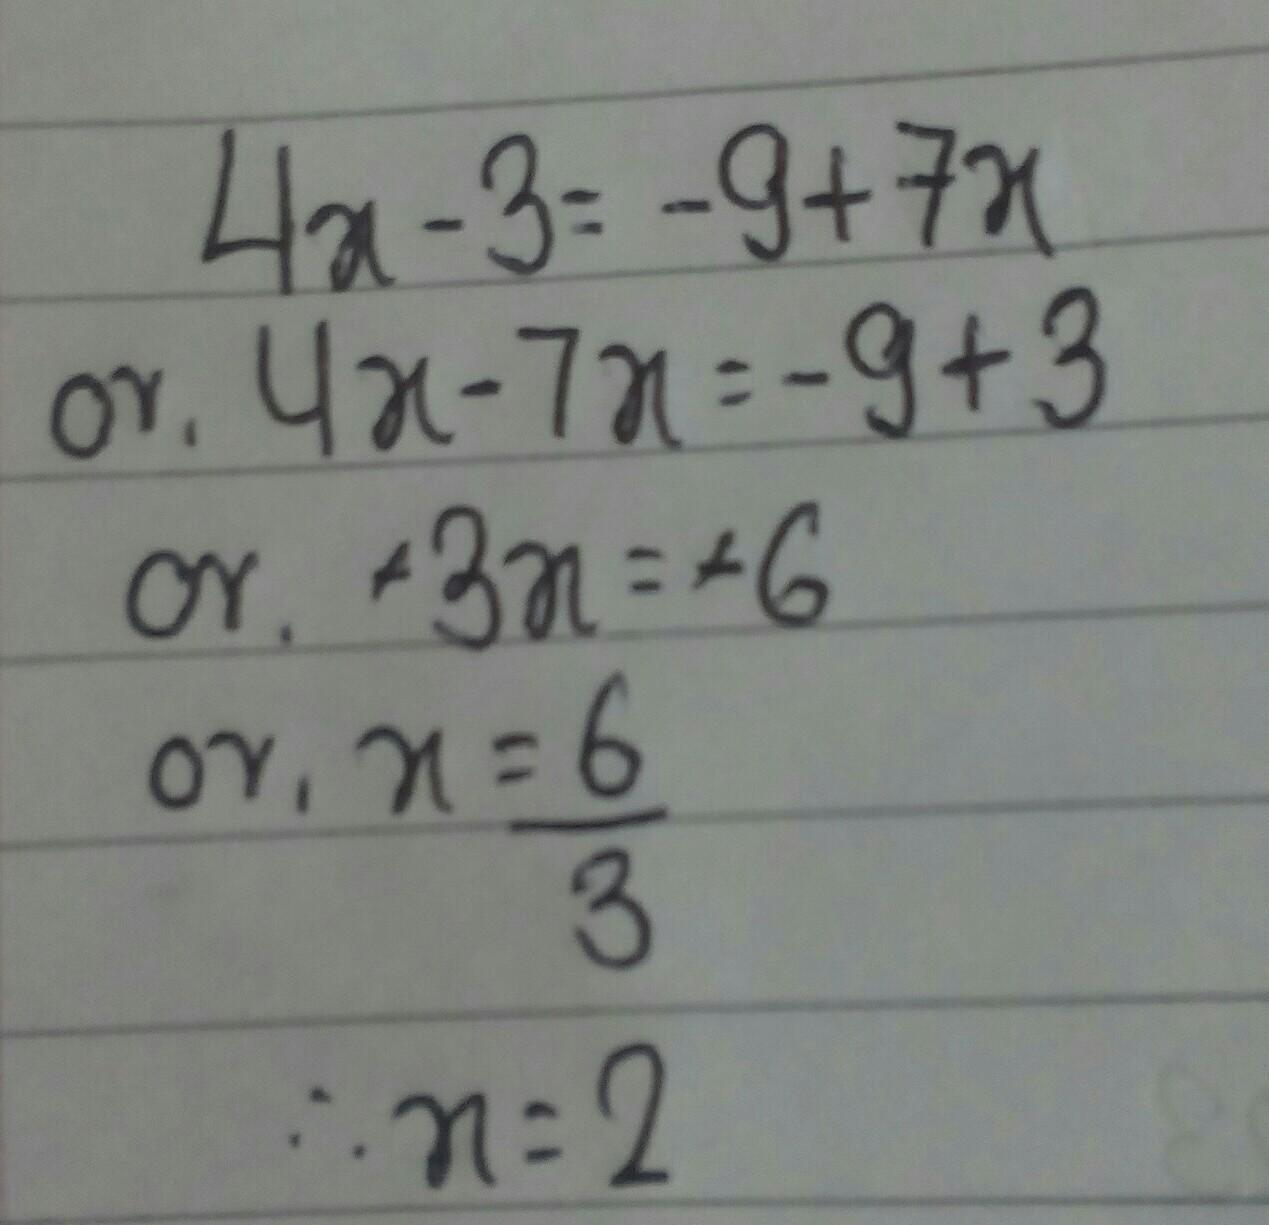 4x - 3 = -9 + 7x
or, 4x - 7x = -9 + 3
or, -3x = -6
or, x = 6/3
∴ x = 2